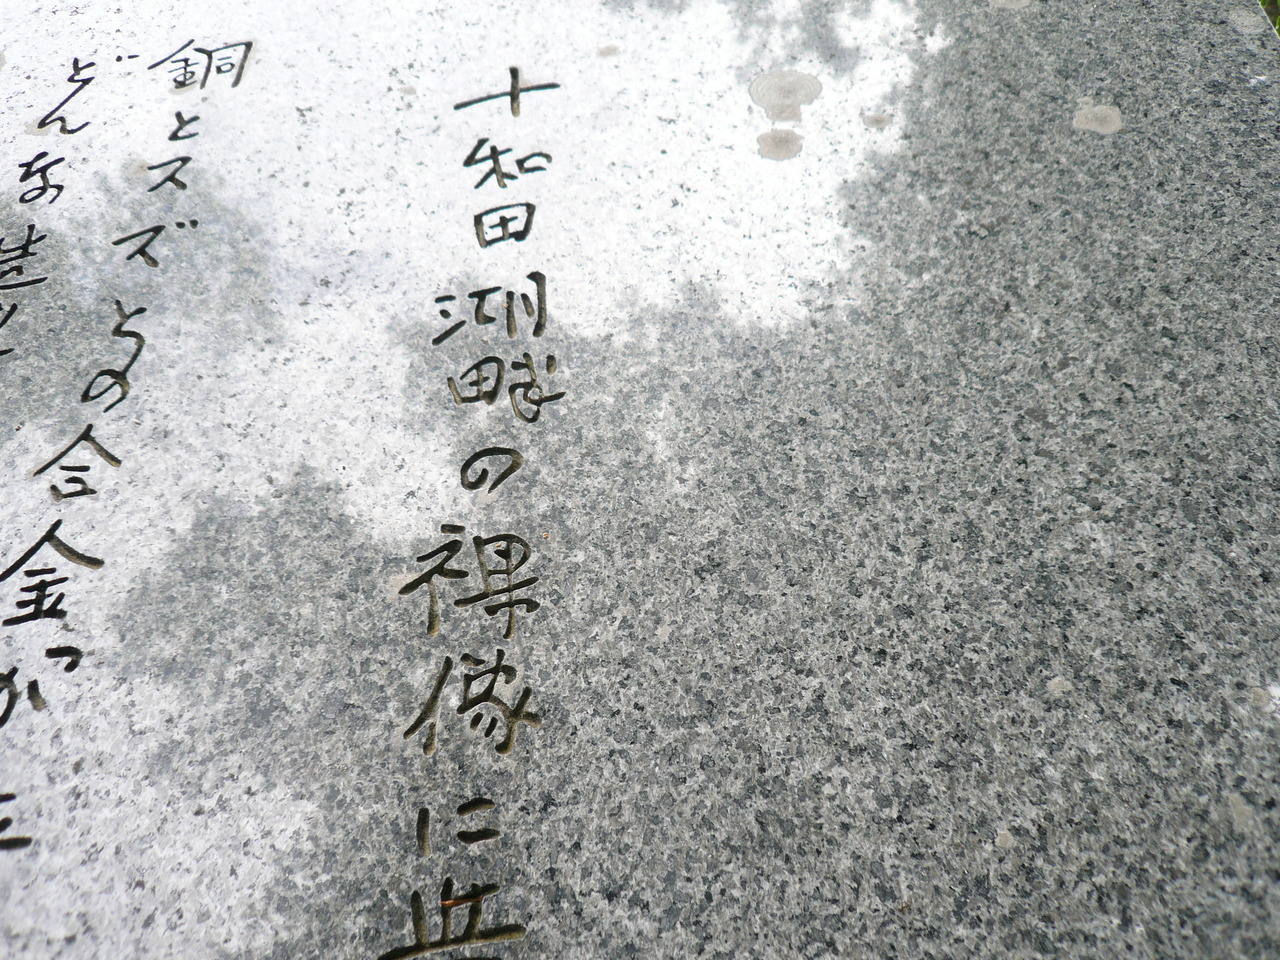 十和田湖畔の裸像に
銅とスズとの合金が
どんな造